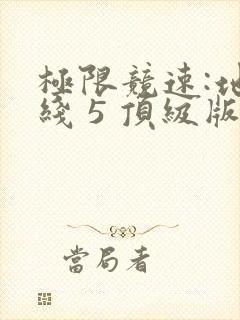 極限競速:地
綫 5 頂級版
當局者